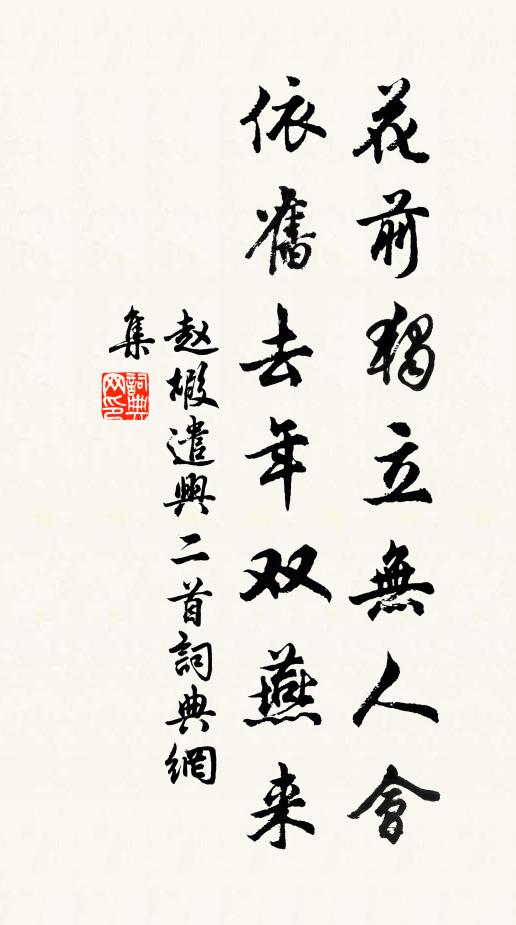 花前獨立無人會
依舊去年双燕来
赵嘏遣興二首詞典網
集
詞典网印